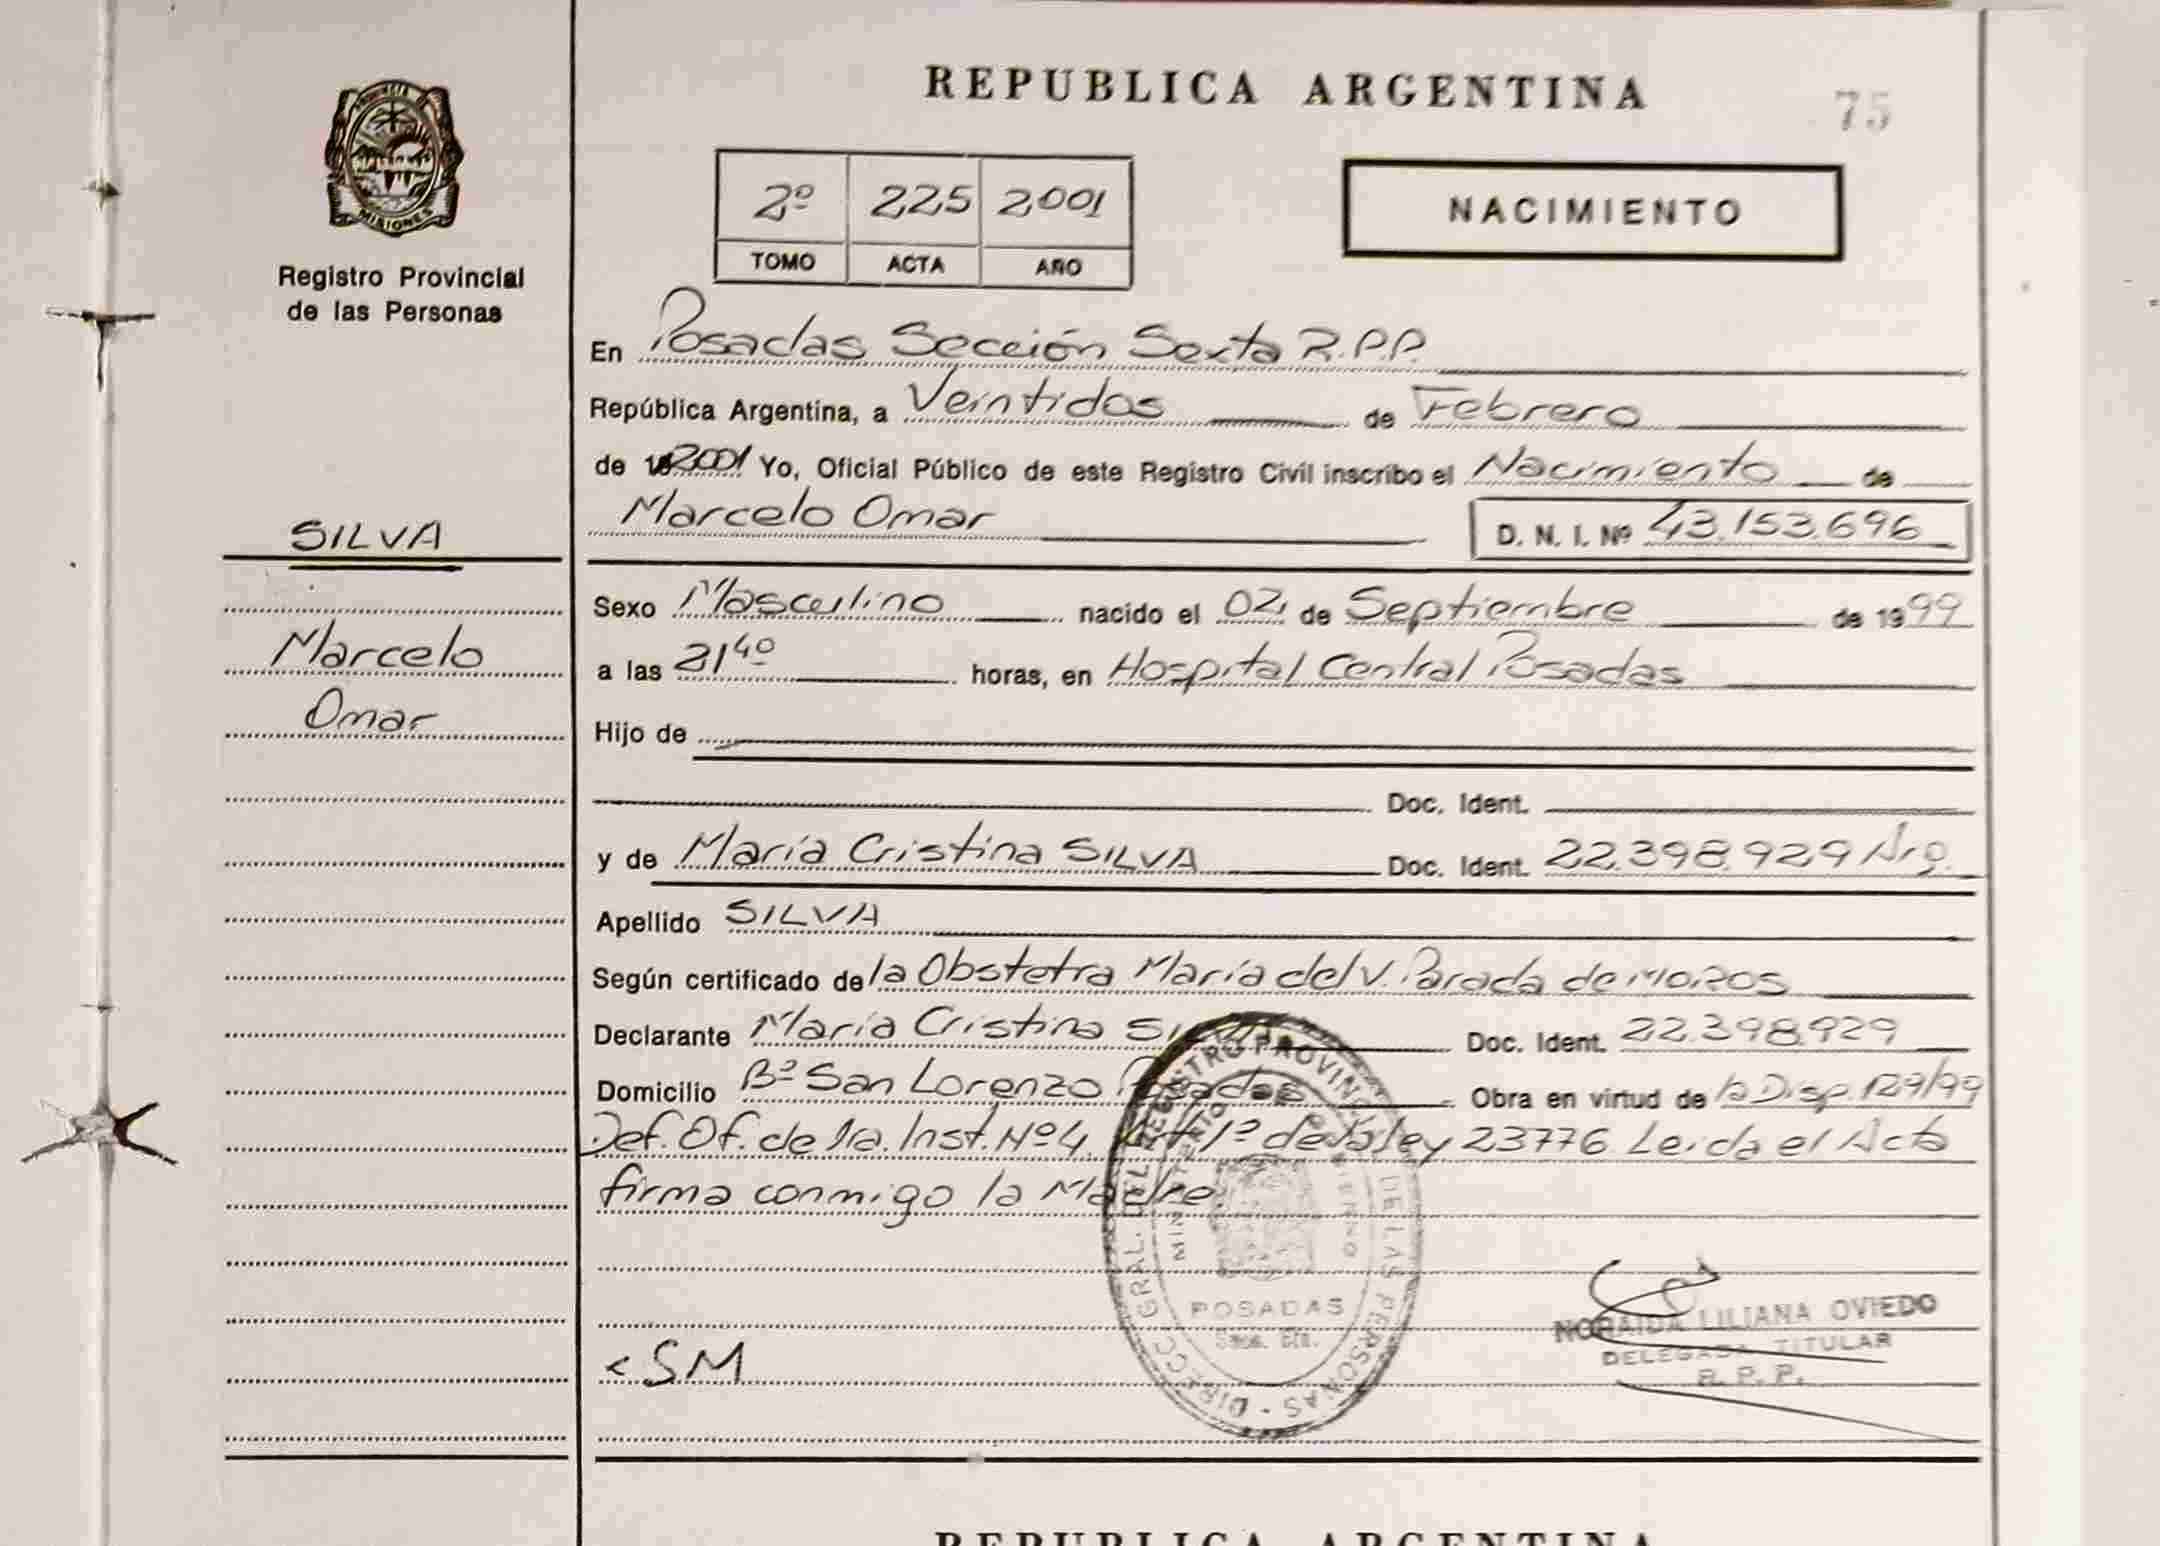 REPUBLICA ARGENTINA
75
PROVINCIA DE
MISIONES
Registro Provincial
de las Personas
2º 225 2001
TOMO ACTA AÑO
NACIMIENTO
En Posadas Sección Sexta R.P.P.
República Argentina, a Veintidos de Febrero
de 2001 Yo, Oficial Público de este Registro Civil inscribo el Nacimiento de
Marcelo Omar D. N. I. Nº 43.153.696
SILVA
Marcelo
Omar
Sexo Masculino nacido el 02 de Septiembre de 1999
a las 21⁴⁰ horas, en Hospital Central Posadas
Hijo de
Doc. Ident.
y de María Cristina SILVA Doc. Ident. 22.398.929 Arg.
Apellido SILVA
Según certificado de la Obstetra María del V. Parada de Moros
Declarante María Cristina SILVA Doc. Ident. 22.398.929
Domicilio Bº San Lorenzo Posadas Obra en virtud de la Disp. 129/99
Def. Of. de 1ra. Inst. Nº 4. Art 1º de la ley 23776. Leida el Acta
firma conmigo la Madre
DIRECC. GRAL. DEL REGISTRO PROVINCIAL DE LAS PERSONAS
MINISTERIO GOBIERNO
POSADAS
NORAIDA LILIANA OVIEDO
DELEGADA TITULAR
R. P. P.
< SM
REPUBLICA ARGENTINA